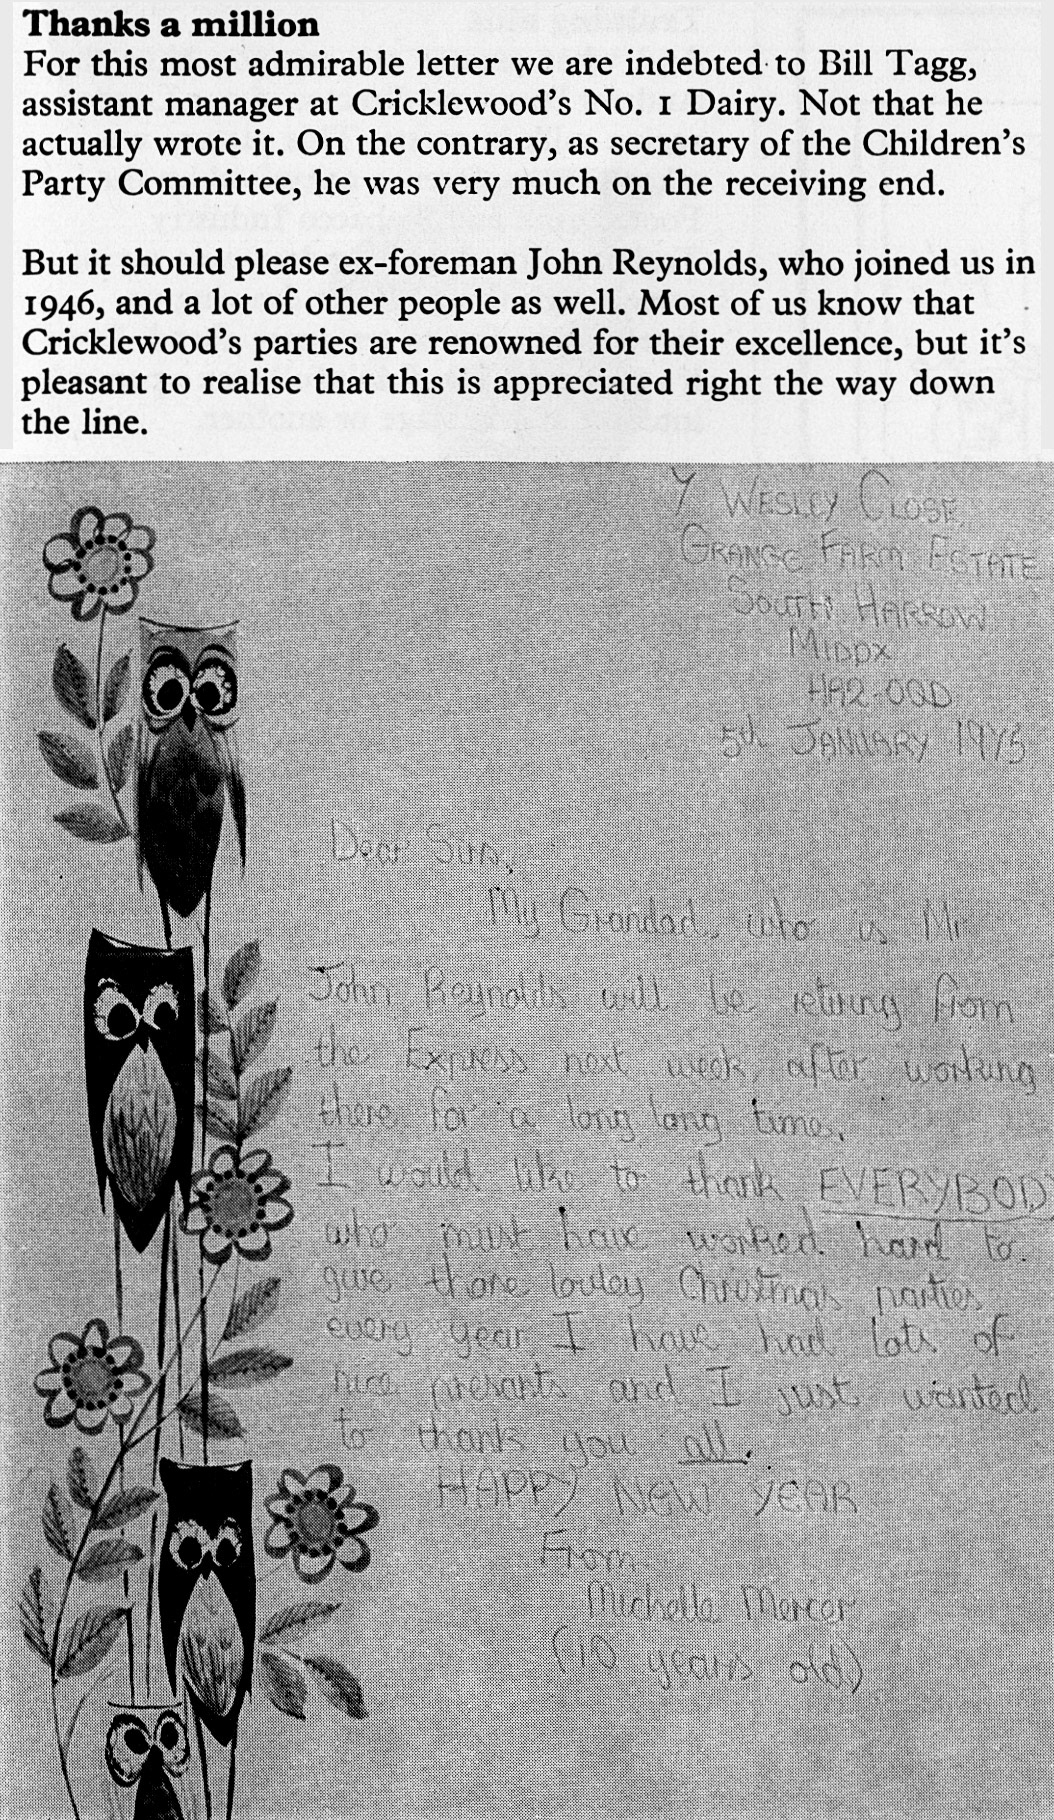 Thanks a million
For this most admirable letter we are indebted to Bill Tagg,
assistant manager at Cricklewood's No. 1 Dairy. Not that he
actually wrote it. On the contrary, as secretary of the Children's
Party Committee, he was very much on the receiving end.
But it should please ex-foreman John Reynolds, who joined us in
1946, and a lot of other people as well. Most of us know that
Cricklewood's parties are renowned for their excellence, but it's
pleasant to realise that this is appreciated right the way down
the line.
7 WESLEY CLOSE
GRANGE FARM ESTATE
SOUTH HARROW
MIDDX
HA2-0QD
5th JANUARY 1975
Dear Sirs,
My Grandad, who is Mr
John Reynolds will be retiring from
the Express next week, after working
there for a long long time.
I would like to thank EVERYBODY
who must have worked hard to
give those lovley Christmas parties
every year I have had lots of
nice presants and I just wanted
to thank you all.
HAPPY NEW YEAR
From
Michelle Mercer
(10 years old)